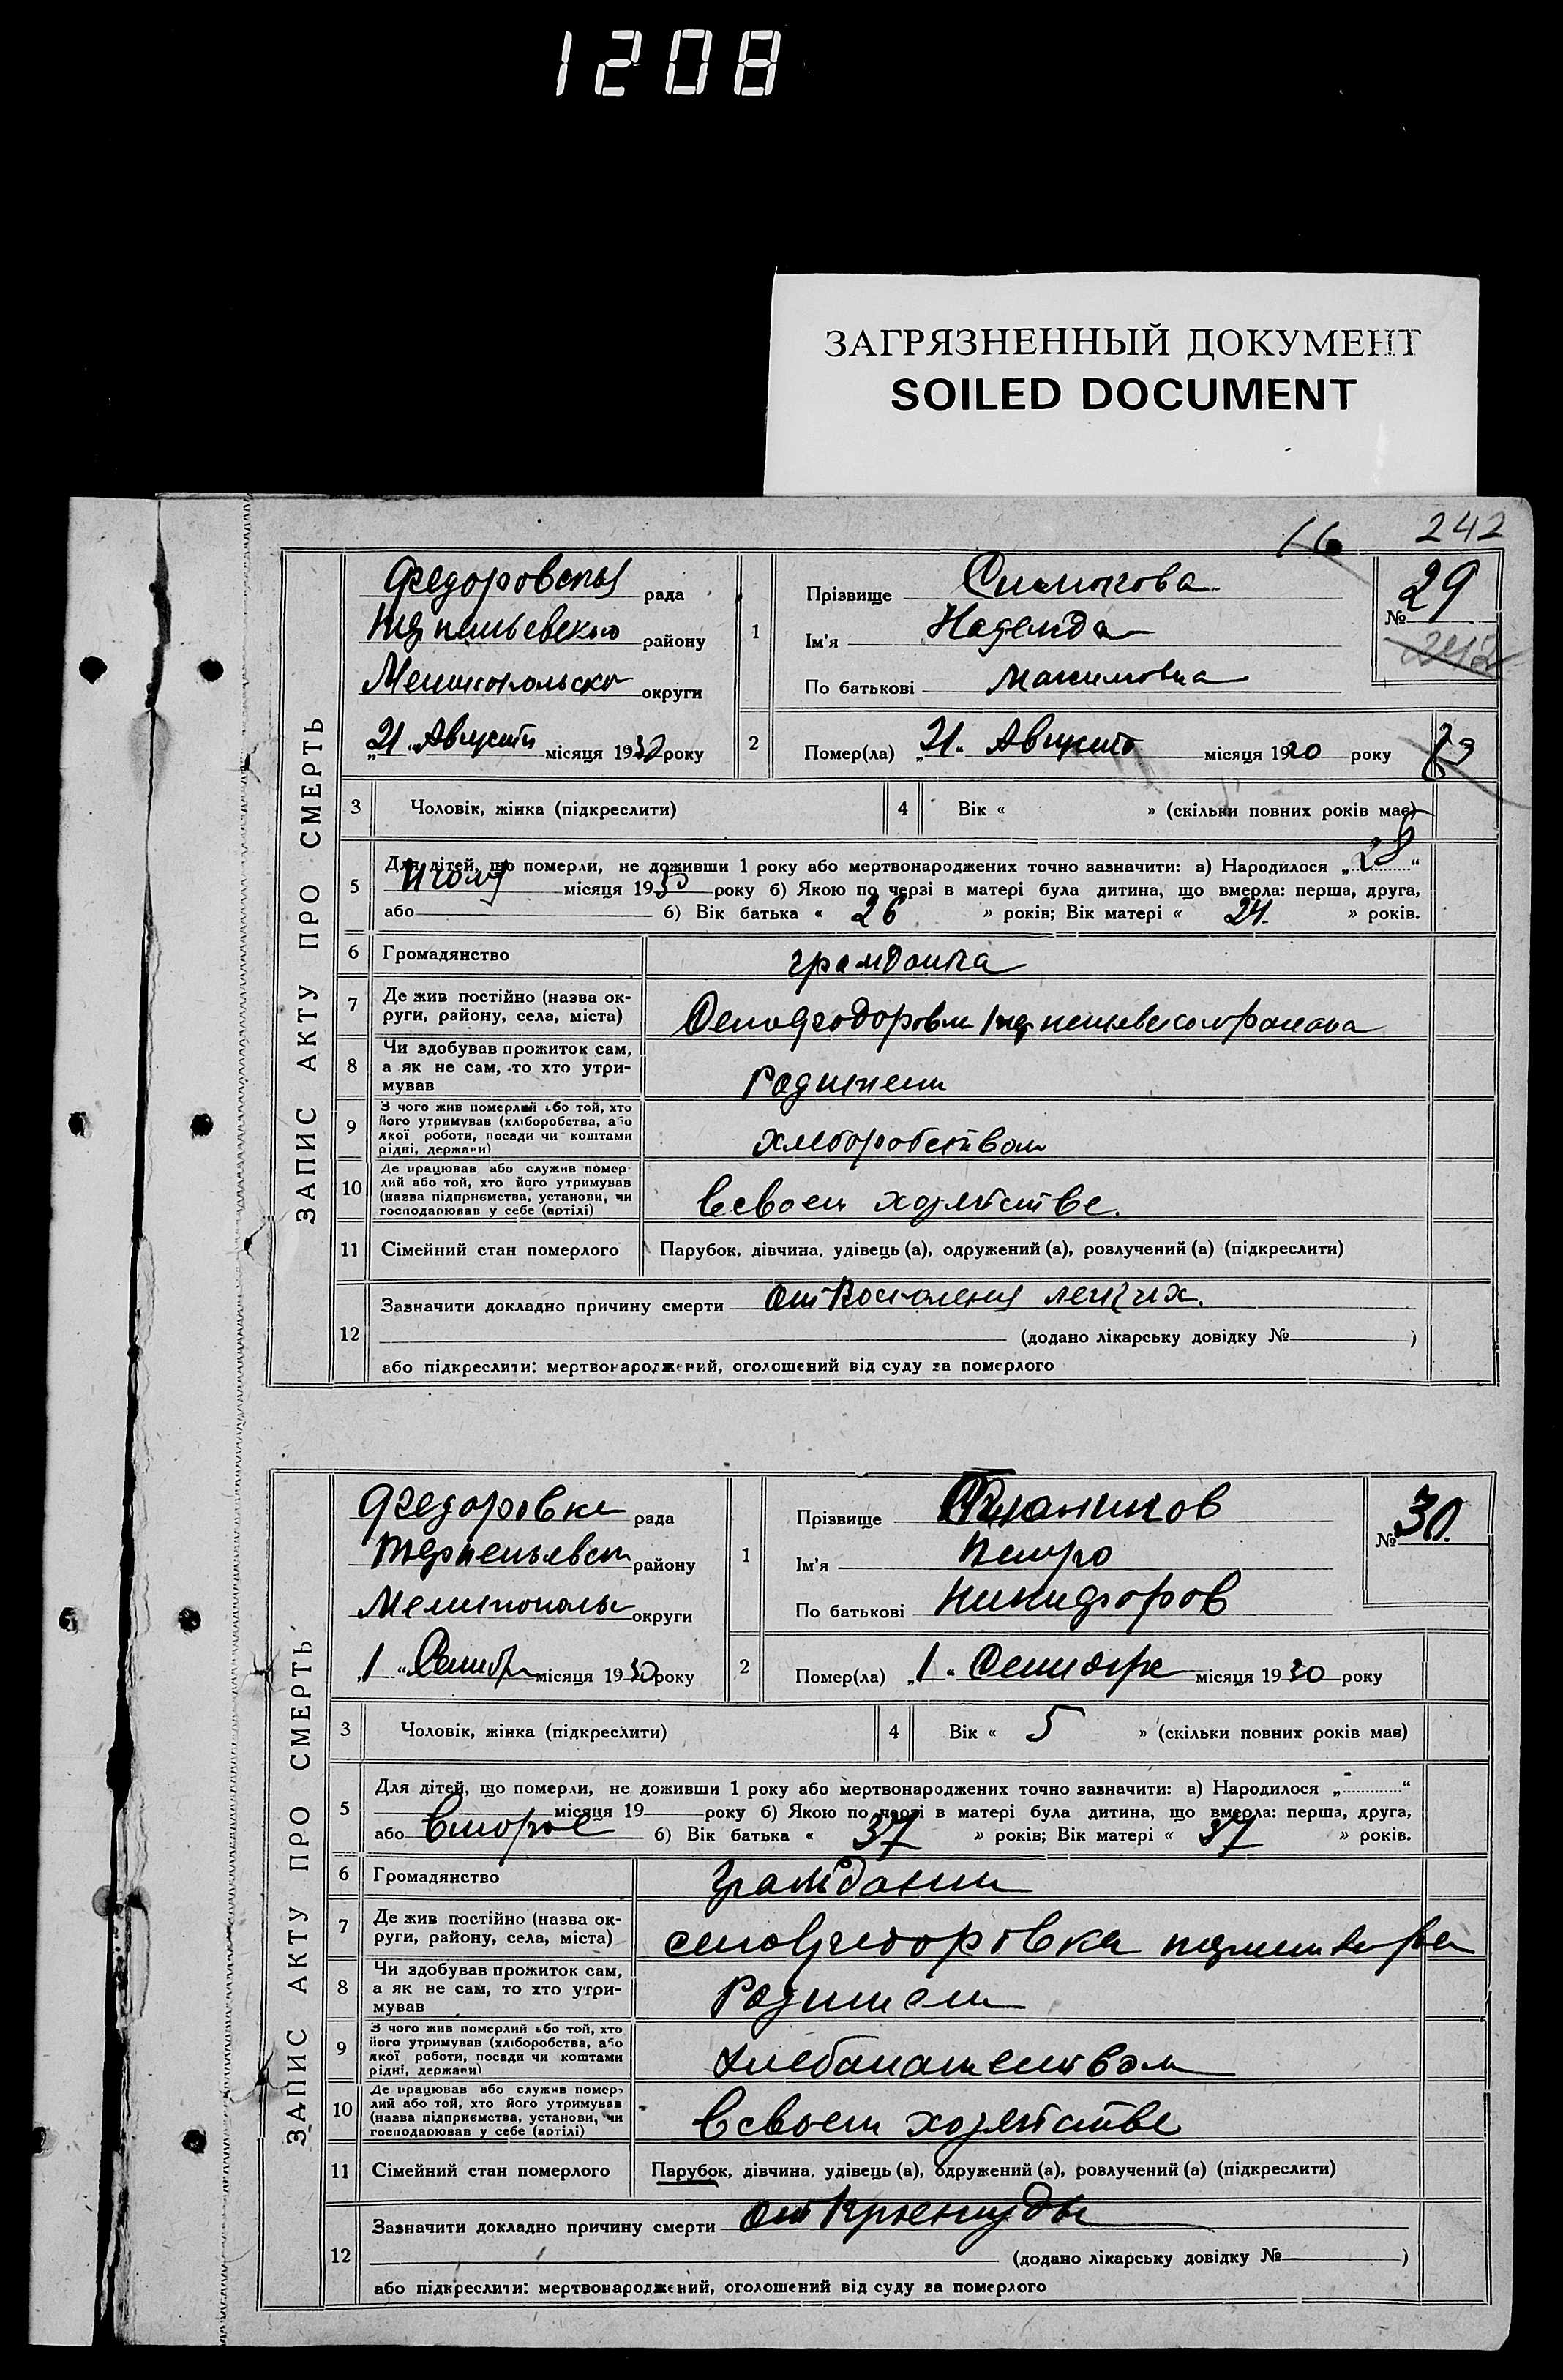 1208
ЗАГРЯЗНЕННЫЙ ДОКУМЕНТ
SOILED DOCUMENT
16 242
ЗАПИС АКТУ ПРО СМЕРТЬ
Федоровская рада
району
округи
„21 “ Августа місяця 1930 року
1 Прізвище
Ім'я Надежда
По батькові Максимовна
№ 29
242
2 Помер(ла) „21 “ Августа місяця 1930 року
3 Чоловік, жінка (підкреслити) 4 Вік « » (скільки повних років має)
5 Для дітей, що померли, не доживши 1 року або мертвонароджених точно зазначити: а) Народилося „28“
Июля місяця 1930 року б) Якою по черзі в матері була дитина, що вмерла: перша, друга,
або б) Вік батька « 26 » років; Вік матері « 24 » років.
6 Громадянство гражданка
7 Де жив постійно (назва ок-
руги, району, села, міста)
8 Чи здобував прожиток сам,
а як не сам, то хто утри-
мував
Родители
9 З чого жив померлий або той, хто
його утримував (хліборобства, або
якої роботи, посади чи коштами
рідні, держави)
хлеборобством
10 Де працював або служив помер-
лий або той, хто його утримував
(назва підприємства, установи, чи
господарював у себе (артілі)
В своем хозяйстве.
11 Сімейний стан померлого Парубок, дівчина, удівець (а), одружений (а), розлучений (а) (підкреслити)
12 Зазначити докладно причину смерти от Воспаления легких.
(додано лікарську довідку № )
або підкреслити: мертвонароджений, оголошений від суду за померлого
ЗАПИС АКТУ ПРО СМЕРТЬ
Федоровка рада
району
округи
„1 “ місяця 1930 року
1 Прізвище
Ім'я Петро
По батькові Никифоров
№ 30.
2 Помер(ла) „1 “ Сентября місяця 1930 року
3 Чоловік, жінка (підкреслити) 4 Вік « 5 » (скільки повних років має)
5 Для дітей, що померли, не доживши 1 року або мертвонароджених точно зазначити: а) Народилося „ “
місяця 19 року б) Якою по черзі в матері була дитина, що вмерла: перша, друга,
або второе б) Вік батька « 37 » років; Вік матері « 37 » років.
6 Громадянство гражданин
7 Де жив постійно (назва ок-
руги, району, села, міста)
село Федоровка
8 Чи здобував прожиток сам,
а як не сам, то хто утри-
мував
Родители
9 З чого жив померлий або той, хто
його утримував (хліборобства, або
якої роботи, посади чи коштами
рідні, держави)
хлебопашеством
10 Де працював або служив помер-
лий або той, хто його утримував
(назва підприємства, установи, чи
господарював у себе (артілі)
В своем хозяйстве
11 Сімейний стан померлого Парубок, дівчина, удівець (а), одружений (а), розлучений (а) (підкреслити)
12 Зазначити докладно причину смерти от
(додано лікарську довідку № )
або підкреслити: мертвонароджений, оголошений від суду за померлого